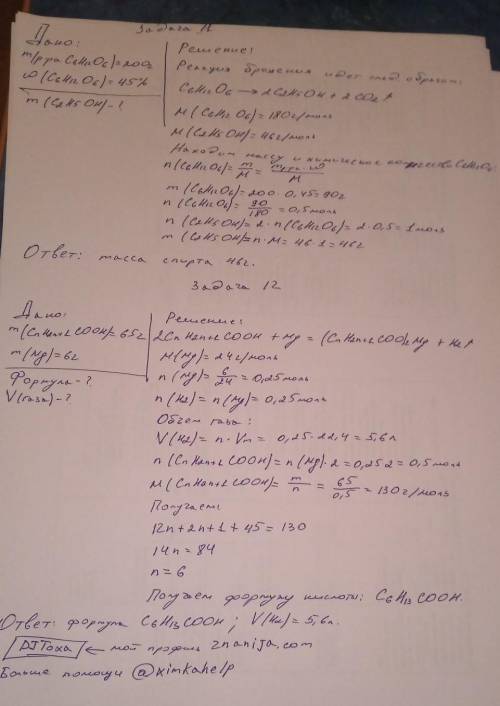 Задача 11
Дано:
m(р-ра C6H12O6)=200г
ω(C6H12O6)=45%
m(C2H5OH)-?
Решение:
Реакция брожения идет след. образом:
C6H12O6 → 2C2H5OH + 2CO2↑
M(C6H12O6)=180г/моль
M(C2H5OH)=46г/моль
Находим массу и химическое C6H12O6:
n(C6H12O6)= m/M = mр-ра·ω/M
m(C6H12O6)=200·0,45=90г
n(C6H12O6)= 90/180 =0,5моль
n(C2H5OH)=2·n(C6H12O6)=2·0,5=1моль
m(C2H5OH)=n·M=46·1=46г
Ответ: масса спирта 46г.
Задача 12
Дано:
m(CnH2n+1COOH)=65г
m(Mg)=6г
Формула-?
V(газа)-?
Решение:
2CnH2n+1COOH + Mg = (CnH2n+1COO)2Mg + H2↑
M(Mg)=24г/моль
n(Mg)= 6/24 =0,25моль
n(H2)=n(Mg)=0,25моль
Объем газа:
V(H2)=n·Vm=0,25·22,4=5,6л
n(CnH2n+1COOH)=n(Mg)·2=0,25·2=0,5моль
M(CnH2n+1COOH)= m/n = 65/0,5 =130г/моль
Получаем:
12n+2n+1+45=130
14n=84
n=6
Получаем формулу кислоты: C6H13COOH.
Ответ: формула C6H13COOH; V(H2)=5,6л.
DJToxa ← мой профиль znanija.com
Больше помощи @ximkahelp